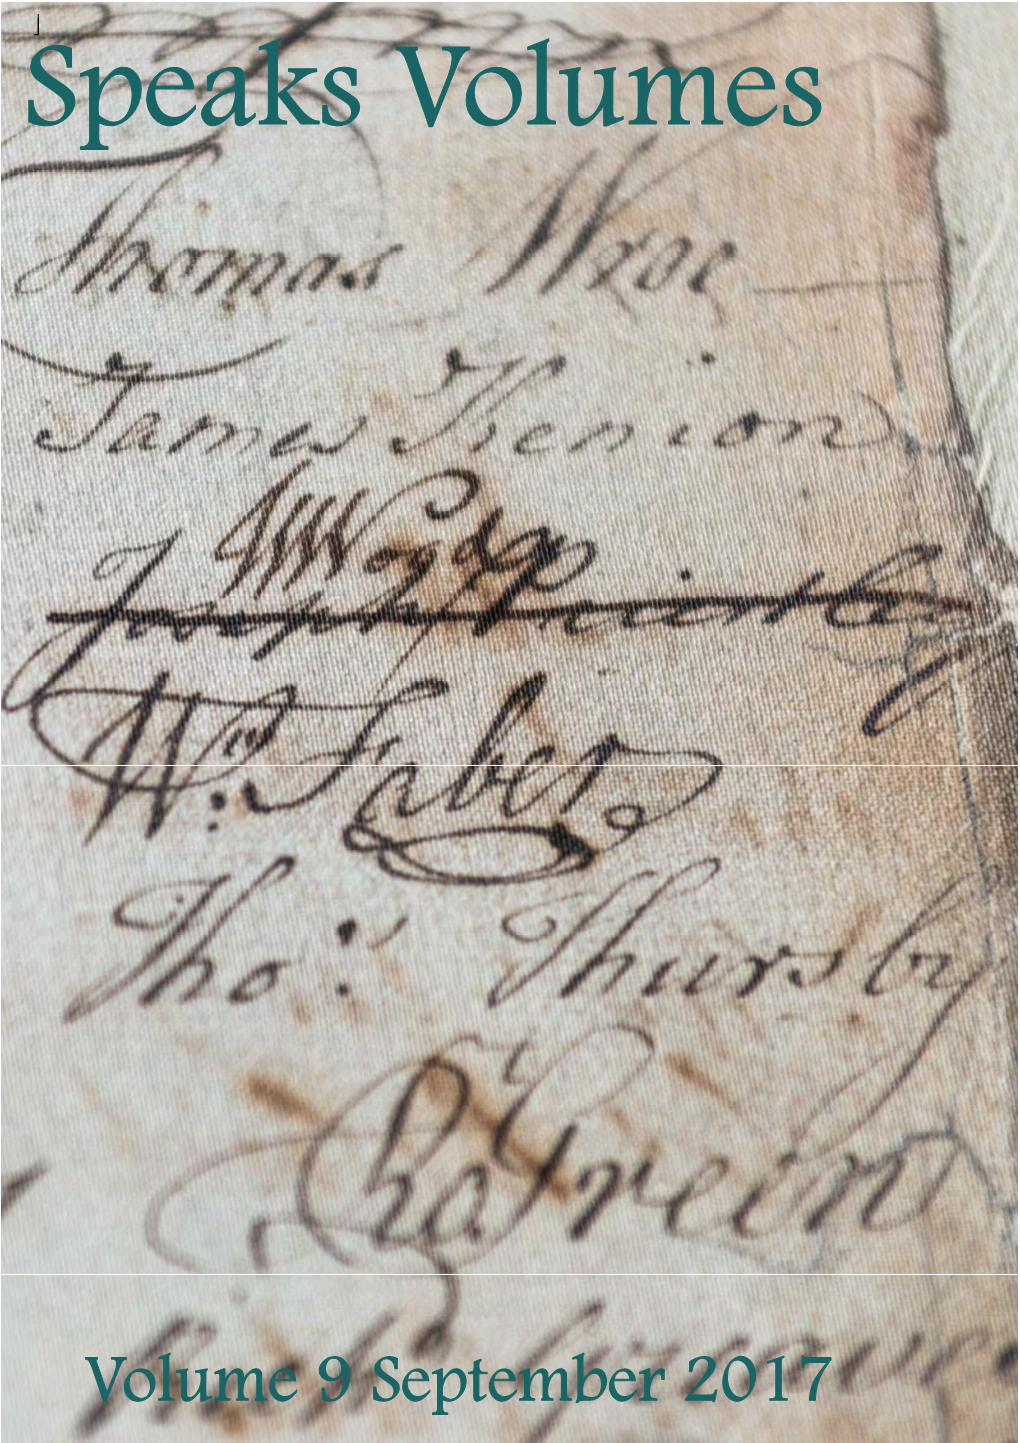 Speaks Volumes
Thomas Wroe
James Kenion
Joseph Priestley
Wm. Faber
Tho: Thursby
Cha Green
Volume 9 September 2017